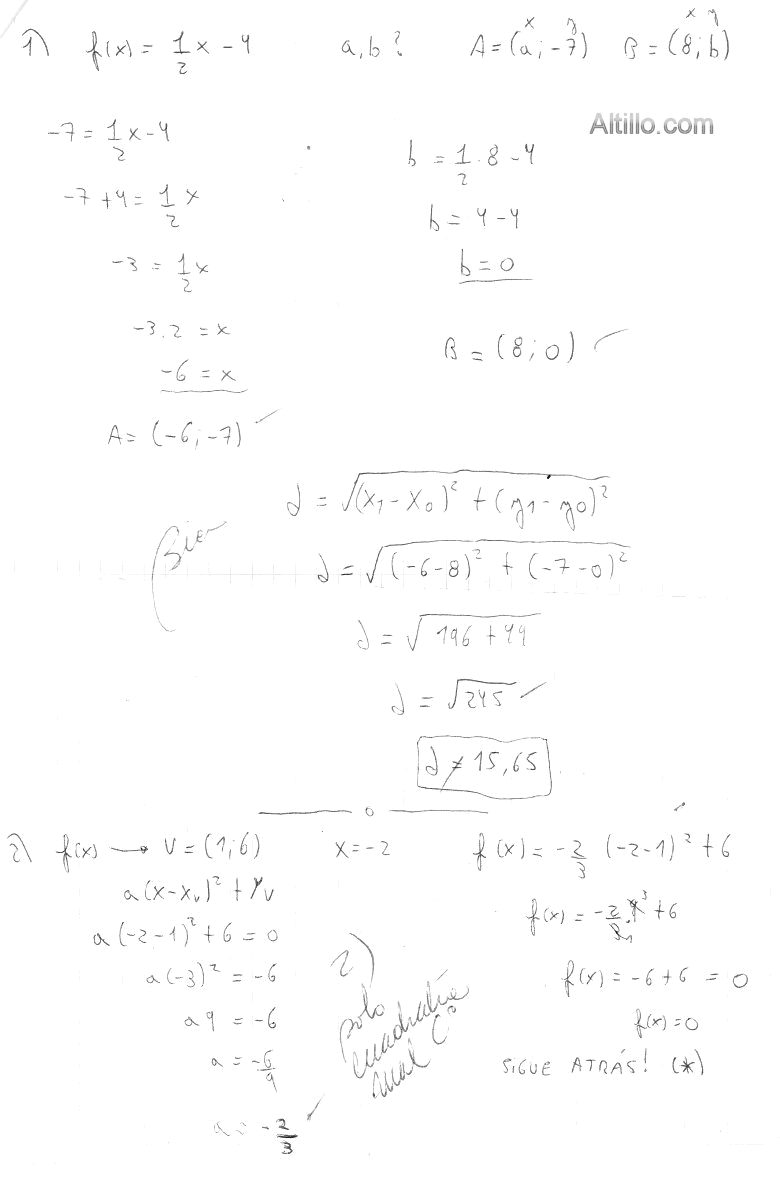 1) f(x) = 1/2 x - 4 a,b? A = (a; -7) B = (8; b)
x y x y
Altillo.com
-7 = 1/2 x - 4
-7 + 4 = 1/2 x
-3 = 1/2 x
-3.2 = x
-6 = x
A = (-6; -7)
b = 1/2 . 8 - 4
b = 4 - 4
b = 0
B = (8; 0)
Bien
d = √(x1 - x0)² + (y1 - y0)²
d = √(-6-8)² + (-7-0)²
d = √196 + 49
d = √245
d ≠ 15,65
2) f(x) → V = (1; 6) x = -2
a(x - xv)² + yv
a(-2-1)² + 6 = 0
a(-3)² = -6
a 9 = -6
a = -6/9
a = -2/3
2)
solo
mal Cº
f(x) = -2/3 (-2-1)² + 6
f(x) = -2/3 . 9 + 6
f(x) = -6 + 6 = 0
f(x) = 0
SIGUE ATRÁS! (*)